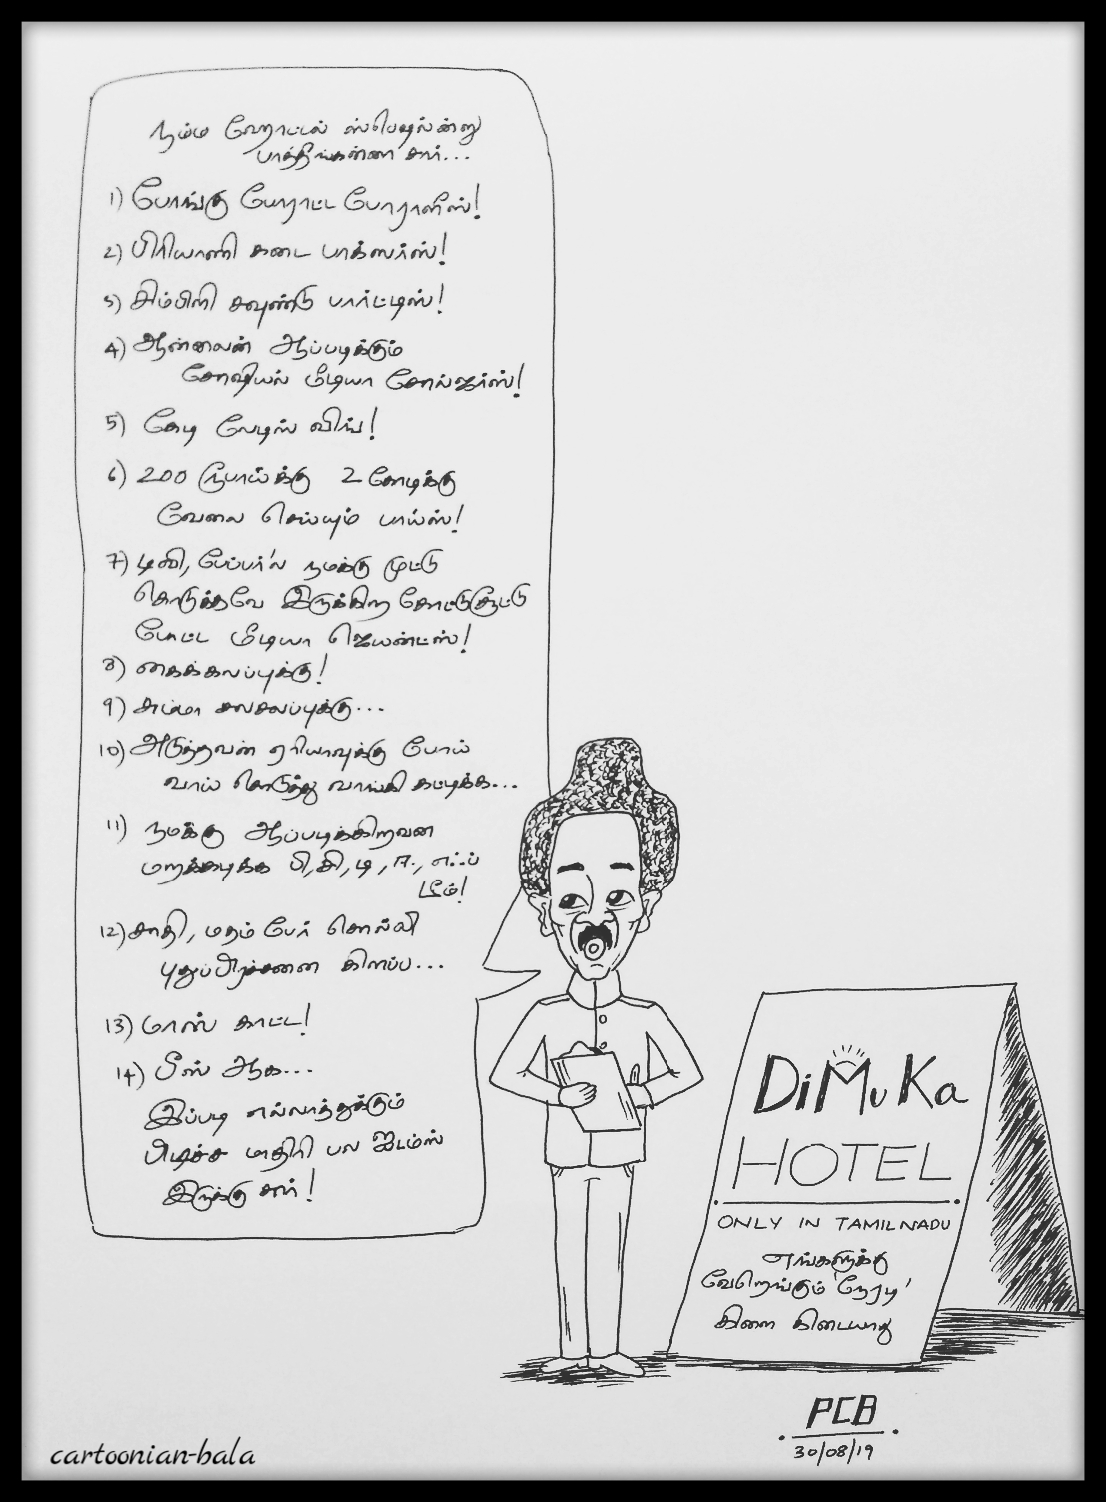 நம்ம ஹோட்டல் ஸ்பெஷல்ன்னு
பாத்தீங்கன்னா சார்...
1) போங்கு போராட்ட போராளீஸ்!
2) பிரியாணி கடை பாக்ஸர்ஸ்!
3) சிம்பிளி சவுண்டு பார்ட்டிஸ்!
4) ஆன்லைன் ஆப்படிக்கும்
சோஷியல் மீடியா சோல்ஜர்ஸ்!
5) கேடி லேடிஸ் விங்!
6) 200 ரூபாய்க்கு 2 கோடிக்கு
வேலை செய்யும் பாய்ஸ்!
7) டிவி, பேப்பர்'ல நமக்கு முட்டு
கொடுக்கவே இருக்கிற கோட்டுசூட்டு
போட்ட மீடியா ஜெயன்ட்ஸ்!
8) கைக்கலப்புக்கு!
9) சும்மா சலசலப்புக்கு...
10) அடுத்தவன் ஏரியாவுக்கு போய்
வாய் கொடுத்து வாங்கி கட்டிக்க...
11) நமக்கு ஆப்படிக்கிறவன
மறக்கடிக்க பி, சி, டி, ஈ, எஃப்
டீம்!
12) சாதி, மதம் பேர் சொல்லி
புதுப்பிரச்சனை கிளப்ப...
13) மாஸ் காட்ட!
14) பீஸ் ஆக...
இப்படி எல்லாத்துக்கும்
பிடிச்ச மாதிரி பல ஐடம்ஸ்
இருக்கு சார்!
DiMuKa
HOTEL
ONLY IN TAMILNADU
எங்களுக்கு
வேறெங்கும் 'நேரடி'
கிளை கிடையாது
PCB
30/08/19
cartoonian-bala